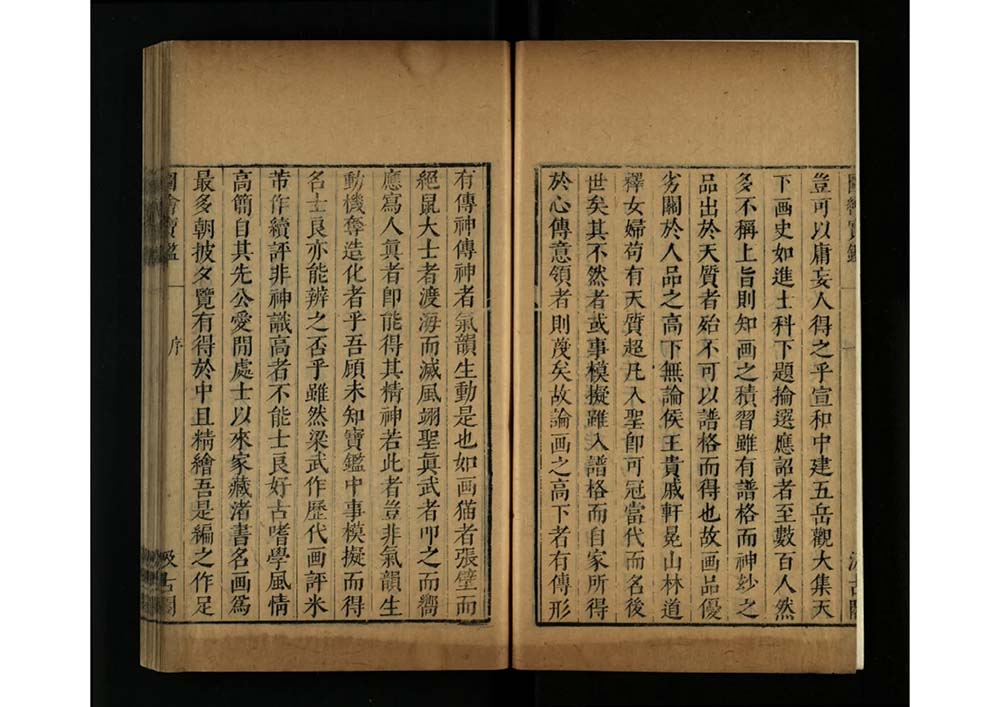 圖繪寶鑑
汲古閣
豈可以庸妄人得之乎宣和中建五岳觀大集天
下画史如進士科下題掄選應詔者至數百人然
多不稱上旨則知画之積習雖有譜格而神妙之
品出於天質者殆不可以譜格而得也故画品優
劣關於人品之高下無論侯王貴戚軒冕山林道
釋女婦苟有天質超凡入聖即可冠當代而名後
世矣其不然者或事模擬雖入譜格而自家所得
於心傳意領者則蔑矣故論画之高下者有傳形
有傳神傳神者氣韻生動是也如画猫者張壁而
絕鼠大士者渡海而滅風翊聖眞武者叩之而嚮
應寫人眞者即能得其精神若此者豈非氣韻生
動機奪造化者乎吾顧未知寶鑑中事模擬而得
名士良亦能辨之否乎雖然梁武作歷代画評米
芾作續評非神識高者不能士良好古嗜學風情
高簡自其先公愛閒處士以來家藏渚書名画爲
最多朝披夕覽有得於中且精繪吾是編之作足
圖繪寶鑑
序
汲古閣